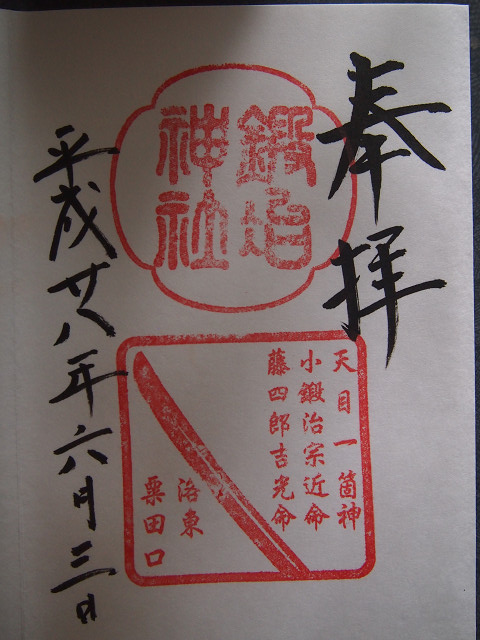 奉拝
鍛冶
神社
天目一箇神
小鍛治宗近命
藤四郎吉光命
洛東
粟田口
平成廿八年六月三日